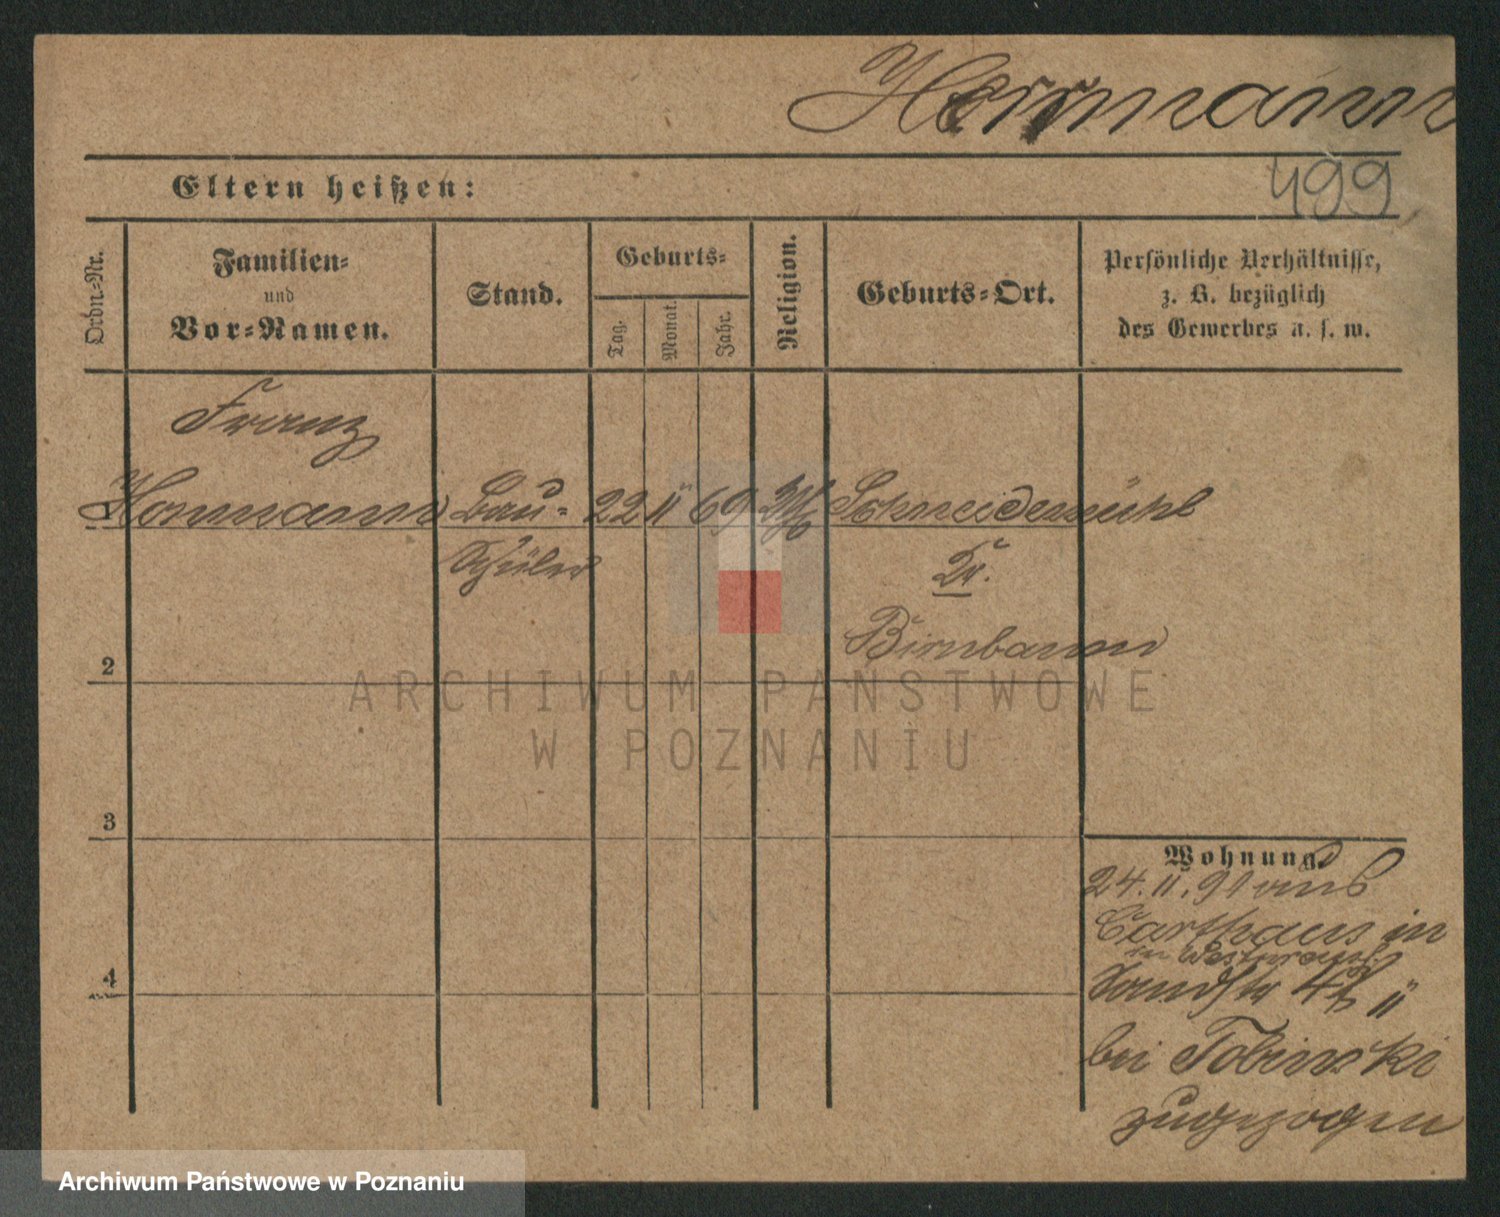 Herrmann
499
Eltern heißen:
Ordn.=Nr.
Familien=
und
Vor=Namen.
Stand.
Geburts=
Tag.
Monat.
Jahr.
Religion.
Geburts=Ort.
Persönliche Verhältnisse,
z. B. bezüglich
des Gewerbes u. s. w.
Franz
1 Hermann Bau= 22 11 69 Schneidemühl
Schüler Kr.
2 Birnbaum
ARCHIWUM PAŃSTWOWE
W POZNANIU
3
Wohnung.
24. 11. 91 aus
Carthaus in
in Westpreuß.
4 Sandstr 4b II
bei Tobinski
zugezogen
Archiwum Państwowe w Poznaniu